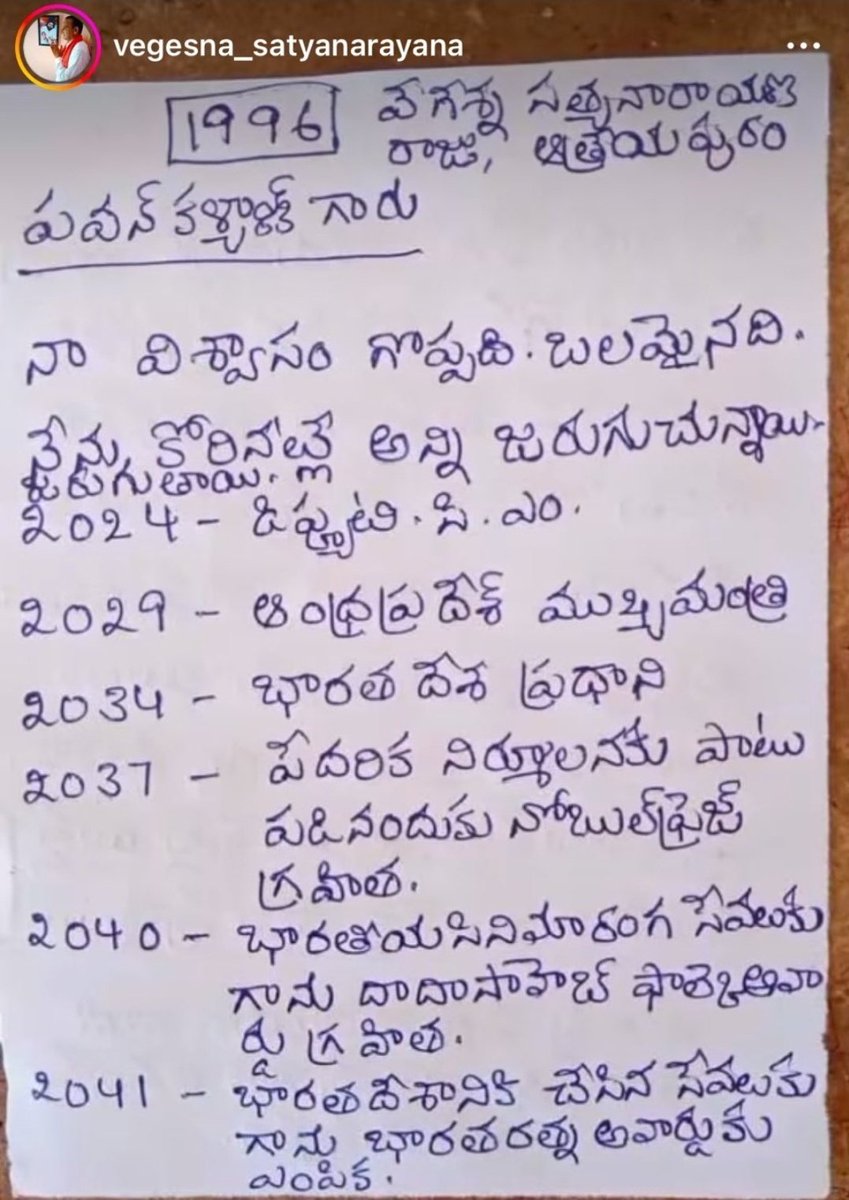 vegesna_satyanarayana
1996 వేగేశ్న సత్యనారాయణ
రాజు, ఆత్రేయపురం
పవన్ కళ్యాణ్ గారు
నా విశ్వాసం గొప్పది. బలమైనది.
నేను కోరినట్లే అన్ని జరుగుచున్నాయి.
జరుగుతాయి.
2024 - డిప్యూటి. సి. ఎం.
2029 - ఆంధ్రప్రదేశ్ ముఖ్యమంత్రి
2034 - భారత దేశ ప్రధాని
2037 - పేదరిక నిర్మూలనకు పాటు
పడినందుకు నోబుల్ ప్రైజ్
గ్రహిత.
2040 - భారతీయ సినిమారంగ సేవలకు
గాను దాదాసాహెబ్ ఫాల్కె అవా
ర్డు గ్రహిత.
2041 - భారతదేశానికి చేసిన సేవలకు
గాను భారతరత్న అవార్డుకు
ఎంపిక.